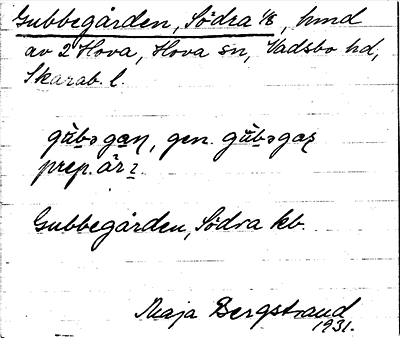 Gubbegården, Södra 1/8, hmd
av 2 Hova, Hova sn, Vadsbo hd,
Skarab. l.
gen.
prep. är
Gubbegården, Södra kb.
Maja Bergstrand
1931.